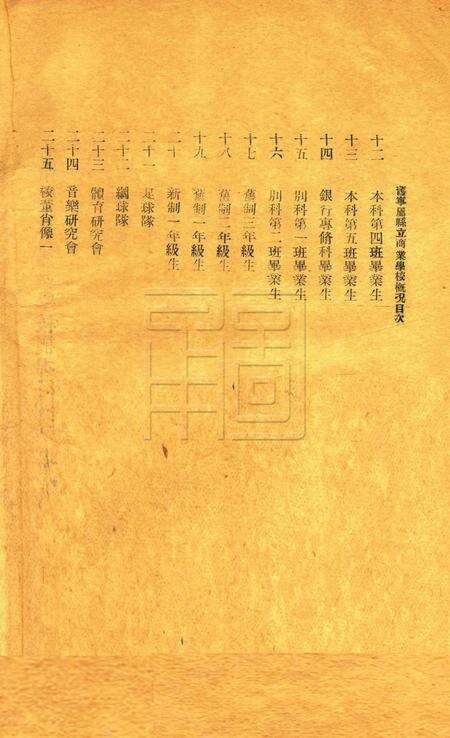 舊寧屬縣立商業學校概況目次
十二 本科第四班畢業生
十三 本科第五班畢業生
十四 銀行專修科畢業生
十五 別科第一班畢業生
十六 別科第二班畢業生
十七 舊制三年級生
十八 舊制二年級生
十九 舊制一年級生
二十 新制一年級生
二十一 足球隊
二十二 網球隊
二十三 體育研究會
二十四 音樂研究會
二十五 校董肖像一